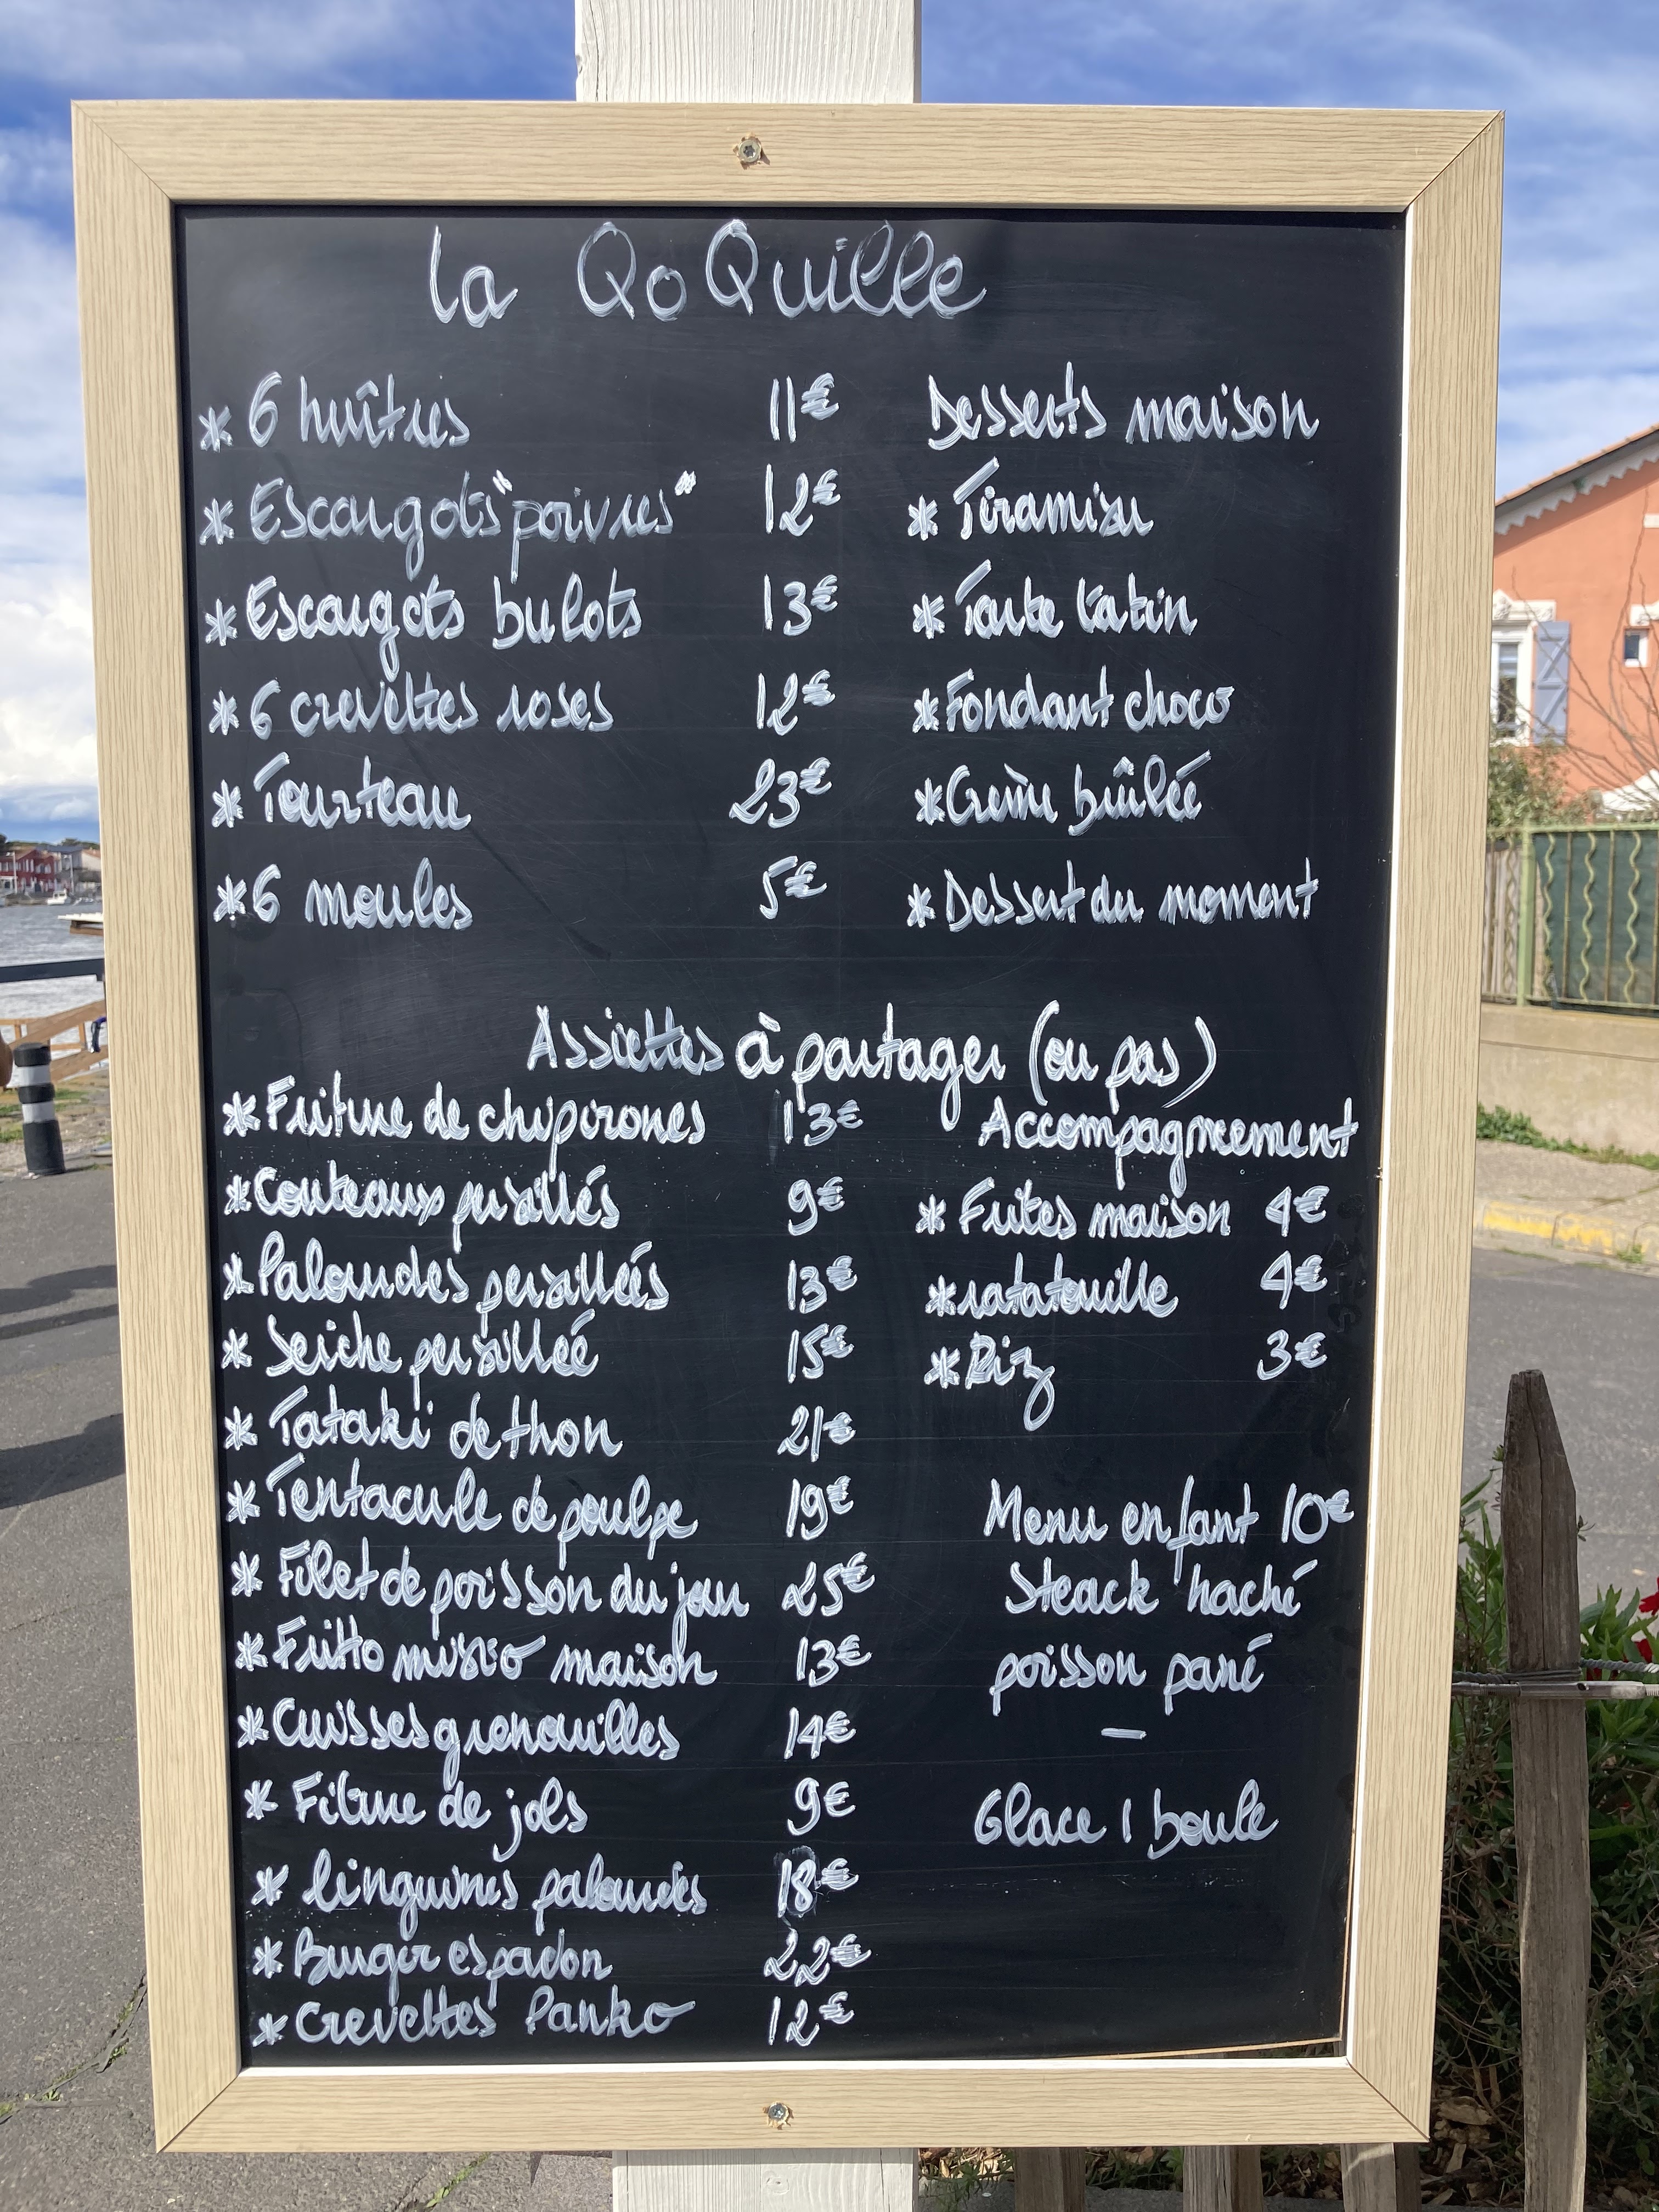 la QoQuille
* 6 huîtres 11€
* Escargots "poivres" 12€
* Escargots bulots 13€
* 6 crevettes roses 12€
* Tourteau 23€
* 6 moules 5€
Desserts maison
* Tiramisu
* Tarte tatin
* Fondant choco
* Crème brûlée
* Dessert du moment
Assiettes à partager (ou pas)
* Friture de chipirones 13€
* Couteaux persillés 9€
* Palourdes persillées 13€
* Seiche persillée 15€
* Tataki de thon 21€
* Tentacule de poulpe 19€
* Filet de poisson du jour 25€
* Fritto misto maison 13€
* Cuisses grenouilles 14€
* Friture de jols 9€
* linguines palourdes 18€
* Burger espadon 22€
* Crevettes Panko 12€
Accompagnement
* Frites maison 4€
* ratatouille 4€
* Riz 3€
Menu enfant 10€
Steack haché
poisson pané
—
Glace 1 boule